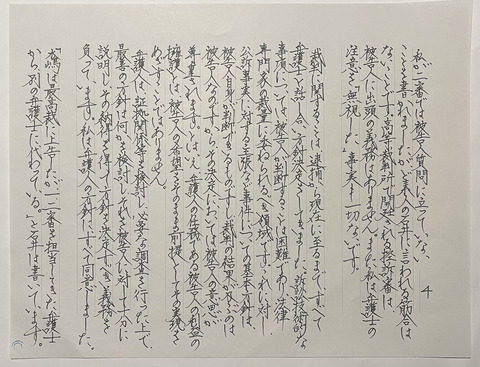 4
私が二審では被告人質問に立っていない、
ことを書かれましたが、どし素人の石井に言われる筋合は
ないことです。高等裁判所で開廷される控訴審は
被告人に出頭の義務はありません。また私は弁護士の
注意を「無視」した事実も一切ないです。
裁判に関することは、逮捕から現在に至るまで、すべて
弁護士と話し合い方針決定をしてきました。訴訟技術的な
事項については被告人が判断することは困難であり、法律
専門家の裁量に委ねられるべき領域です。これに対し、
公訴事実に対する主張など事件についての基本方針は、
被告人自身が判断できるものですし、裁判の結果が及ぶのは
被告人なのですから、その決定においては被告人の意思が
尊重されます。とはいえ、弁護人の任務である被告人の利益の
擁護は、被告人の希望をそのまま前提としてその実現を
めざすことではありません。
弁護人は、証拠関係等を検討し、必要な調査を行った上で、
最善の方針は何かを検討し、それを被告人に対して十分に
説明し、その納得を得て、方針を決定すべき義務を
負っています。私は弁護人の方針にすべて同意しました。
「水嶋は最高裁に上告したが、一、二審を担当してきた弁護士
から、別の弁護士にかわっている。」と石井は書いています。